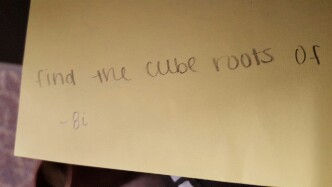 find the cube roots of
-8i